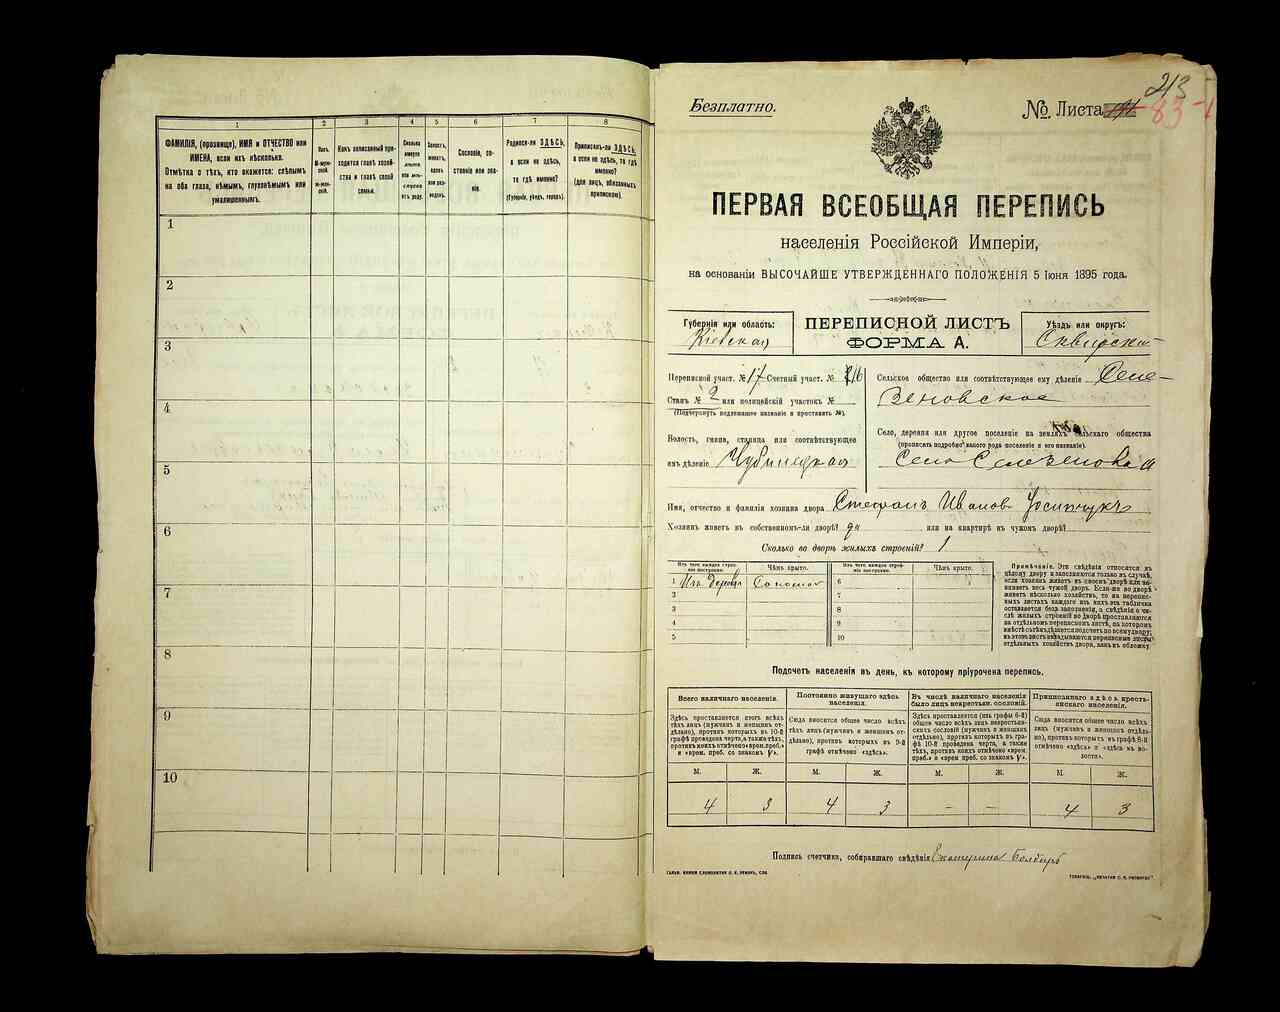 1 2 3 4 5 6 7 8
ФАМИЛІЯ, (прозвище), ИМЯ и ОТЧЕСТВО или
ИМЕНА, если ихъ нѣсколько.
Отмѣтка о тѣхъ, кто окажется: слѣпымъ
на оба глаза, нѣмымъ, глухонѣмымъ или
умалишеннымъ.
Полъ.
М-муж-
ской.
Ж-жен-
скій.
Какъ записанный при-
ходится главѣ хозяй-
ства и главѣ своей
семьи.
Сколько
минуло
лѣтъ
или мѣ-
сяцевъ
отъ роду.
Холостъ,
женатъ,
вдовъ
или раз-
веденъ.
Сословіе, со-
стояніе или зва-
ніе.
Родился-ли ЗДѢСЬ,
а если не здѣсь,
то гдѣ именно?
(Губернія, уѣздъ, городъ).
Приписанъ-ли ЗДѢСЬ,
а если не здѣсь, то гдѣ
именно?
(для лицъ, обязанныхъ
припискою).
1
2
3
4
5
6
7
8
9
10
213
Безплатно.
№ Листа 83
ПЕРВАЯ ВСЕОБЩАЯ ПЕРЕПИСЬ
населенія Россійской Имперіи,
на основаніи ВЫСОЧАЙШЕ УТВЕРЖДЕННАГО ПОЛОЖЕНІЯ 5 Іюня 1895 года.
Губернія или область:
Кіевская
ПЕРЕПИСНОЙ ЛИСТЪ
ФОРМА А.
Уѣздъ или округъ:
Сквирскій
Переписной участ. № 17 Счетный участ. №
Станъ № 2 или полицейскій участокъ №
(Подчеркнуть подлежащее названіе и проставить №).
Волость, гмина, станица или соотвѣтствующее
имъ дѣленіе Чубинецкая
Сельское общество или соотвѣтствующее ему дѣленіе Селе-
зеновское
Село, деревня или другое поселеніе на земляхъ сельскаго общества
(прописать подробно какого рода поселеніе и его названіе).
Село Селезеновка
Имя, отчество и фамилія хозяина двора Стефанъ Иванов Осипчукъ
Хозяинъ живетъ въ собственномъ-ли дворѣ? да или на квартирѣ въ чужомъ дворѣ?
Сколько во дворѣ жилыхъ строеній? 1
Изъ чего каждое строе-
ніе построено. Чѣмъ крыто. Изъ чего каждое строе-
ніе построено. Чѣмъ крыто.
1 Изъ дерева Соломой 6
2 7
3 8
4 9
5 10
Примѣчаніе. Эти свѣдѣнія относятся къ
цѣлому двору и заполняются только въ случаѣ,
если хозяинъ живетъ въ своемъ дворѣ или за-
нимаетъ весь чужой дворъ. Если-же во дворѣ
живетъ нѣсколько хозяйствъ, то на перепис-
ныхъ листахъ каждаго изъ нихъ эта табличка
оставляется безъ заполненія, а свѣдѣнія о чи-
слѣ жилыхъ строеній во дворѣ проставляются
на отдѣльномъ переписномъ листѣ, на которомъ
Подсчетъ населенія въ день, къ которому пріурочена перепись.
Всего наличнаго населенія.
Здѣсь проставляется итогъ всѣхъ
лицъ (мужчинъ и женщинъ от-
дѣльно), противъ которыхъ въ 10-й
графѣ проведена черта, а также тѣхъ,
противъ коихъ отмѣчено «врем. преб.»
и «врем. преб. со знакомъ V».
Постоянно живущаго здѣсь
населенія.
Сюда вносится общее число всѣхъ
тѣхъ лицъ (мужчинъ и женщинъ от-
дѣльно), противъ которыхъ въ 9-й
графѣ отмѣчено «здѣсь».
Въ числѣ наличнаго населенія
было лицъ некрестьян. сословій.
Здѣсь проставляется (изъ графы 6-й)
общее число всѣхъ лицъ некрестьян-
скихъ сословій (мужчинъ и женщинъ
отдѣльно), противъ которыхъ въ гра-
фѣ 10-й проведена черта, а также
тѣхъ, противъ коихъ отмѣчено «врем.
преб.» и «врем. преб. со знакомъ V».
Приписаннаго здѣсь кресть-
янскаго населенія.
Сюда вносится общее число всѣхъ
лицъ (мужчинъ и женщинъ отдѣль-
но), противъ которыхъ въ графѣ 8-й
отмѣчено «здѣсь» и «здѣсь въ во-
лости».
М. Ж. М. Ж. М. Ж. М. Ж.
4 3 4 3 – – 4 3
Подпись счетчика, собиравшаго свѣдѣнія Екатерина